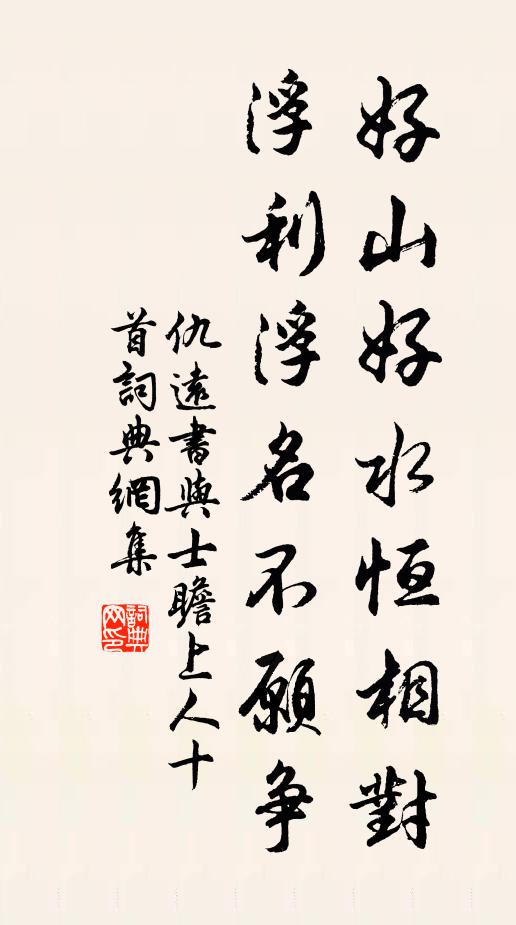 好山好水恒相對
浮利浮名不願争
仇遠書與士瞻上人十
首詞典網集
詞典網印